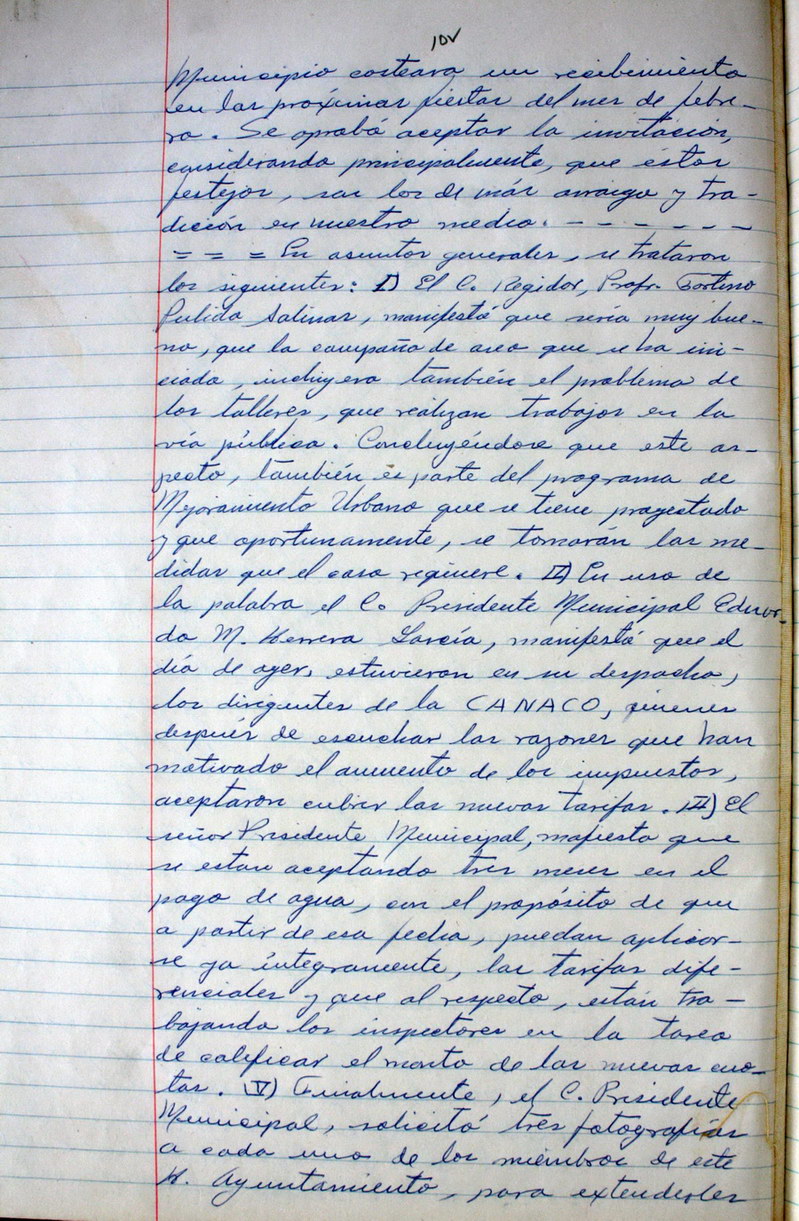 10v
Municipio costeara un recibimiento
en las próximas fiestas del mes de febre-
ro. Se aprobó aceptar la invitación,
considerando principalmente, que éstos
festejos, son los de más arraigo y tra-
dición en nuestro medio. - - - - - -
= = = En asuntos generales, se trataron
los siguientes: I) El C. Regidor, Profr. Fortino
Pulido Salinas, manifestó que sería muy bue-
no, que la campaña de aseo que se ha ini-
ciado, incluyera también el problema de
los talleres, que realizan trabajos en la
vía pública. Concluyéndose que este as-
pecto, también es parte del programa de
Mejoramiento Urbano que se tiene proyectado
y que oportunamente, se tomarán las me-
didas que el caso requiere. II) En uso de
la palabra el C. Presidente Municipal Eduar-
do M. Herrera García, manifestó que el
día de ayer, estuvieron en su despacho,
los dirigentes de la CANACO, quienes
después de escuchar las razones que han
motivado el aumento de los impuestos,
aceptaron cubrir las nuevas tarifas. III) El
señor Presidente Municipal, mafiesta que
se estan aceptando tres meses en el
pago de agua, con el propósito de que
a partir de esa fecha, puedan aplicar-
se ya íntegramente, las tarifas dife-
renciales y que al respecto, están tra-
bajando los inspectores en la tarea
de calificar el monto de las nuevas cuo-
tas. IV) Finalmente, el C. Presidente
Municipal, solicitó tres fotografías
a cada uno de los miembros de este
H. Ayuntamiento, para extenderles